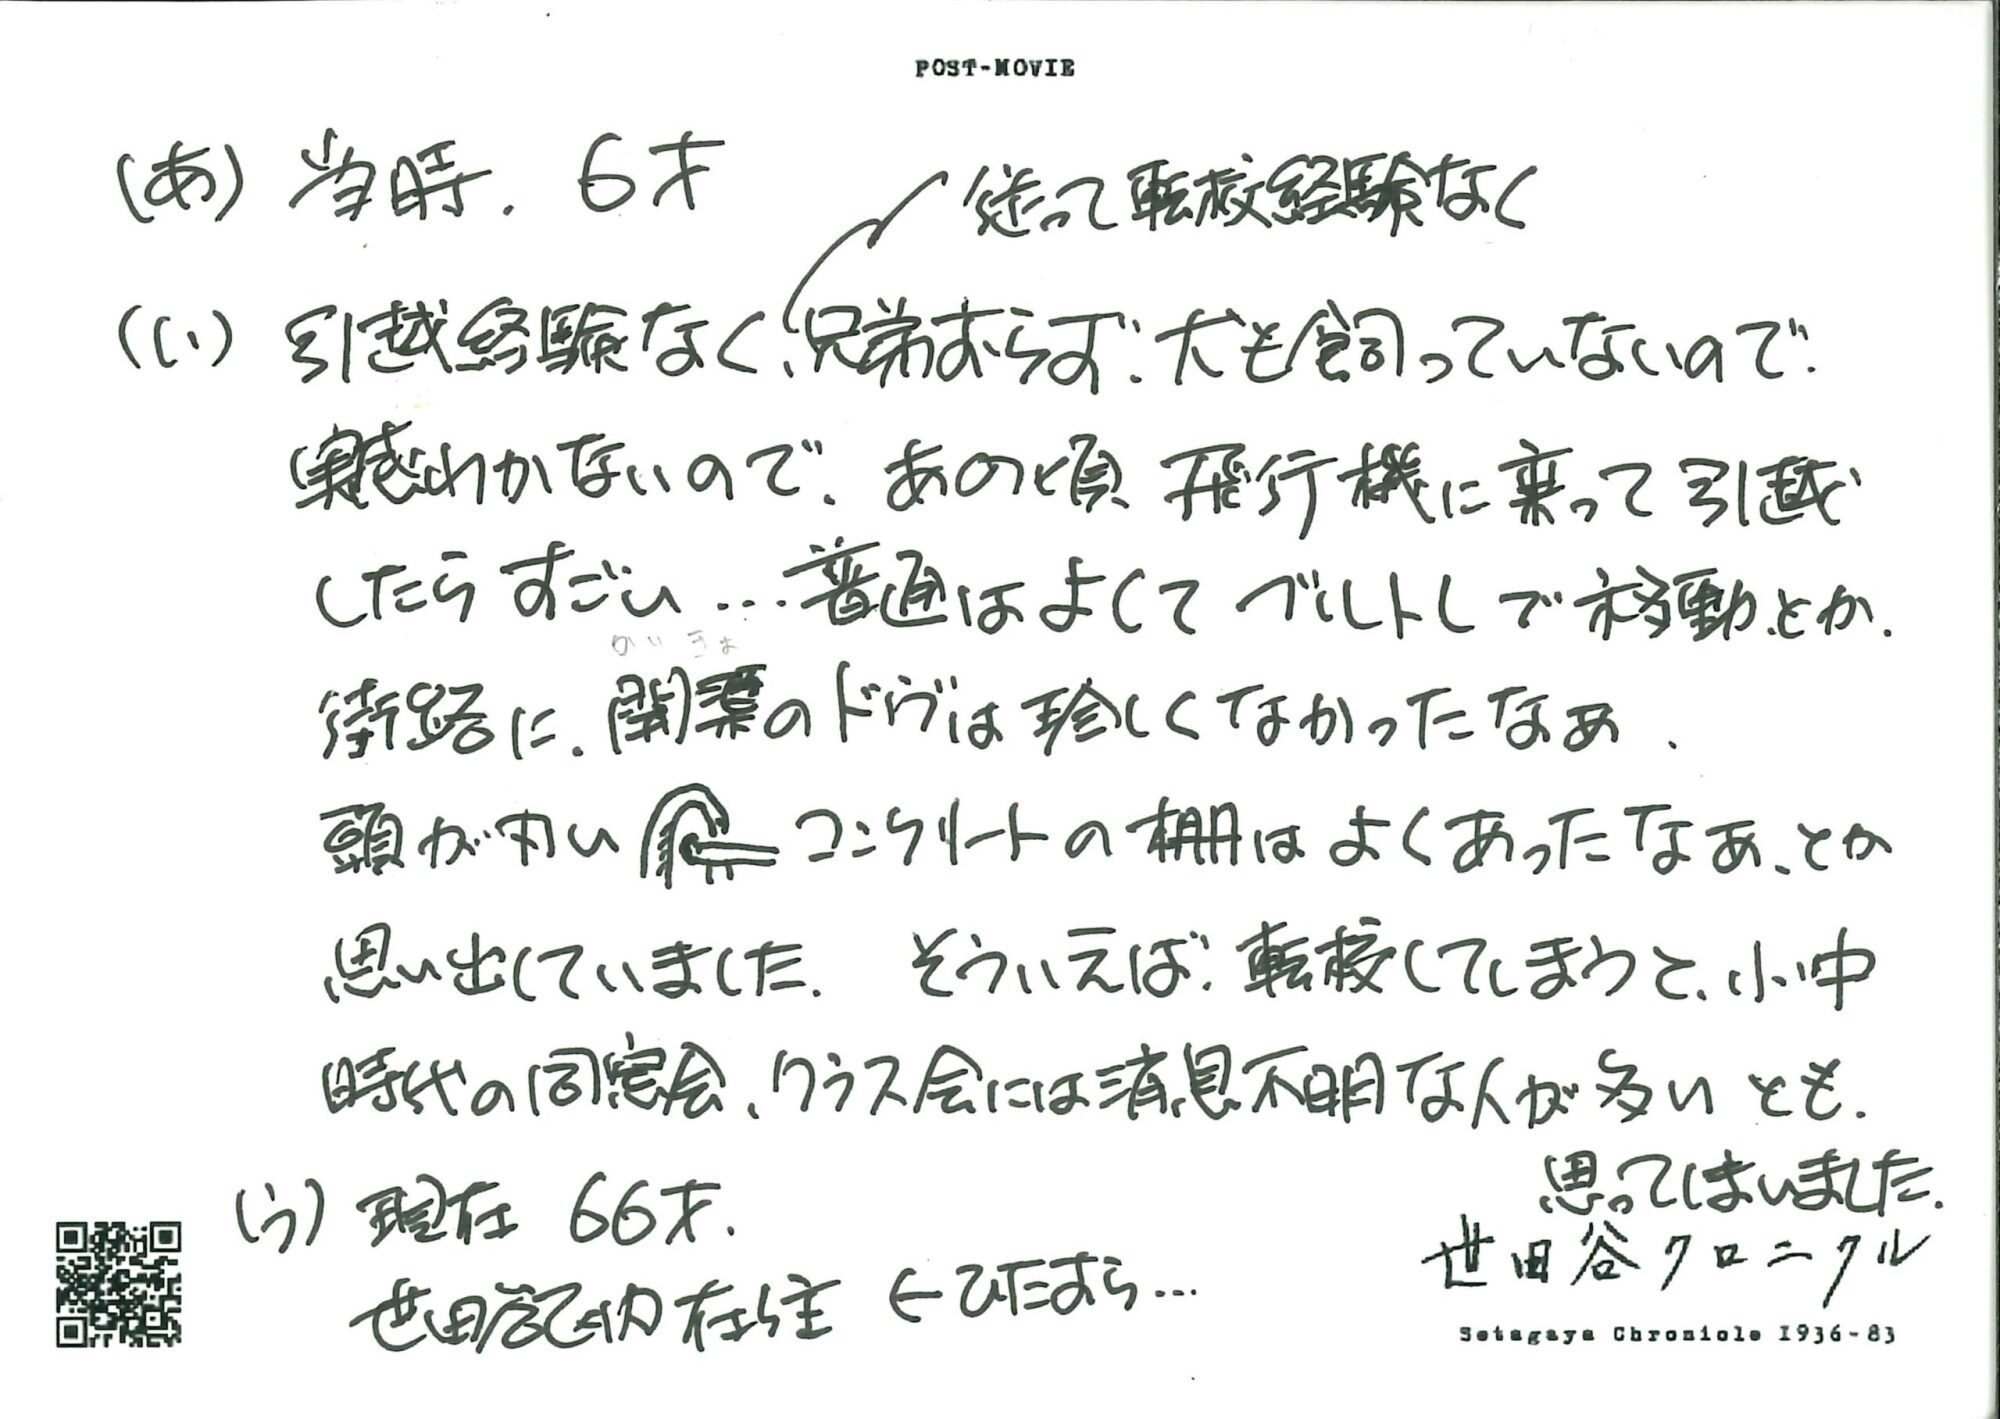 POST-MOVIE
(あ) 当時. 6才
従って転校経験なく
(い) 引越経験なく、兄弟おらず、犬も飼っていないので.
実感わかないので、あの頃 飛行機に乗って引越
したら すごい...普通はよくて ブルトレで移動、とか.
かいきょ
街路に、開渠のドヴは珍しくなかったなぁ.
頭が丸い コンクリートの柵はよくあったなぁ、とか
思い出していました. そういえば、転校してしまうと、小・中
時代の同窓会、クラス会には消息不明な人が多いとも.
思ってしまいました.
(う) 現在 66才.
世田谷区内在住 ←ひたすら...
世田谷クロニクル
Setagaya Chronicle 1936-83